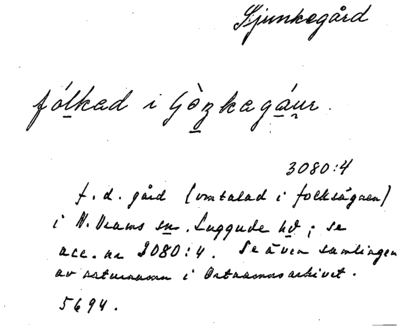 Sjunkegård
fólkad i Gòzkagáur.
3080:4
f. d. gård (omtalad i folksägnen)
i N. Vrams sn. Luggude hd; se
acc. nr 3080:4. Se även samlingen
av naturnamn i Ortnamnsarkivet.
5694.